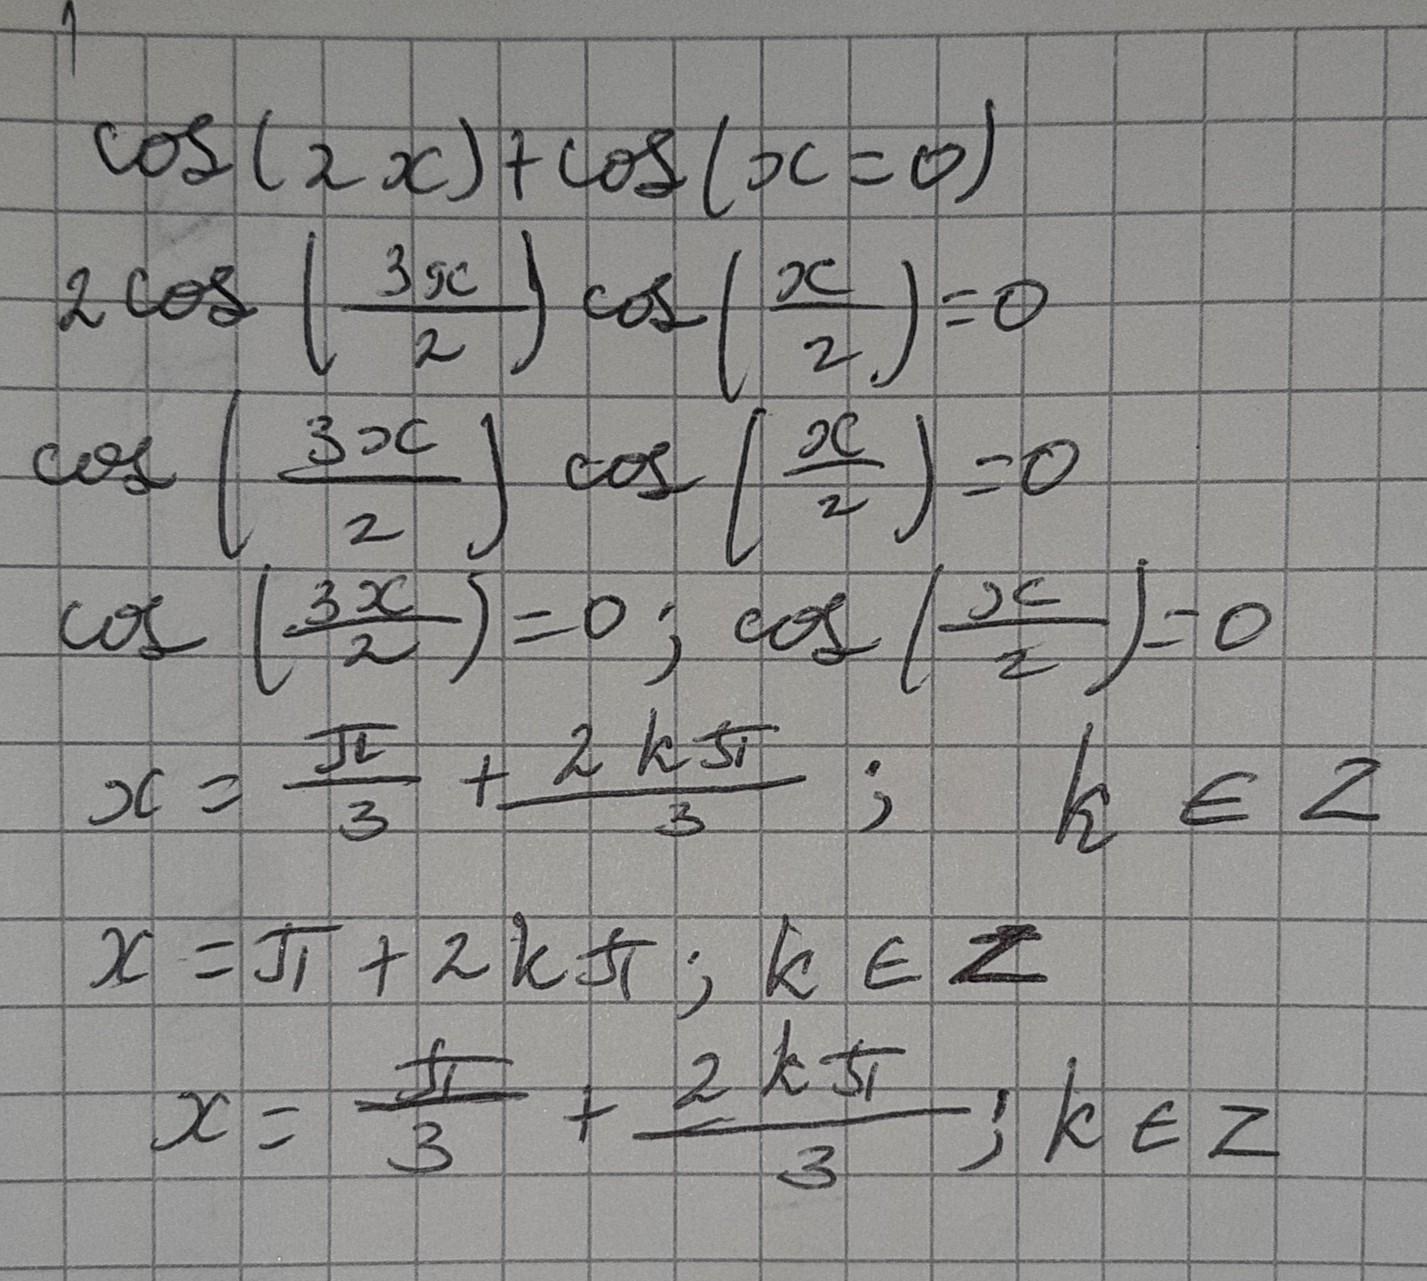 1
cos(2x)+cos(x=0)
2cos(3x/2)cos(x/2)=0
cos(3x/2)cos(x/2)=0
cos(3x/2)=0; cos(x/2)=0
x=π/3+2kπ/3; k∈Z
x=π+2kπ; k∈Z
x=π/3+2kπ/3; k∈Z